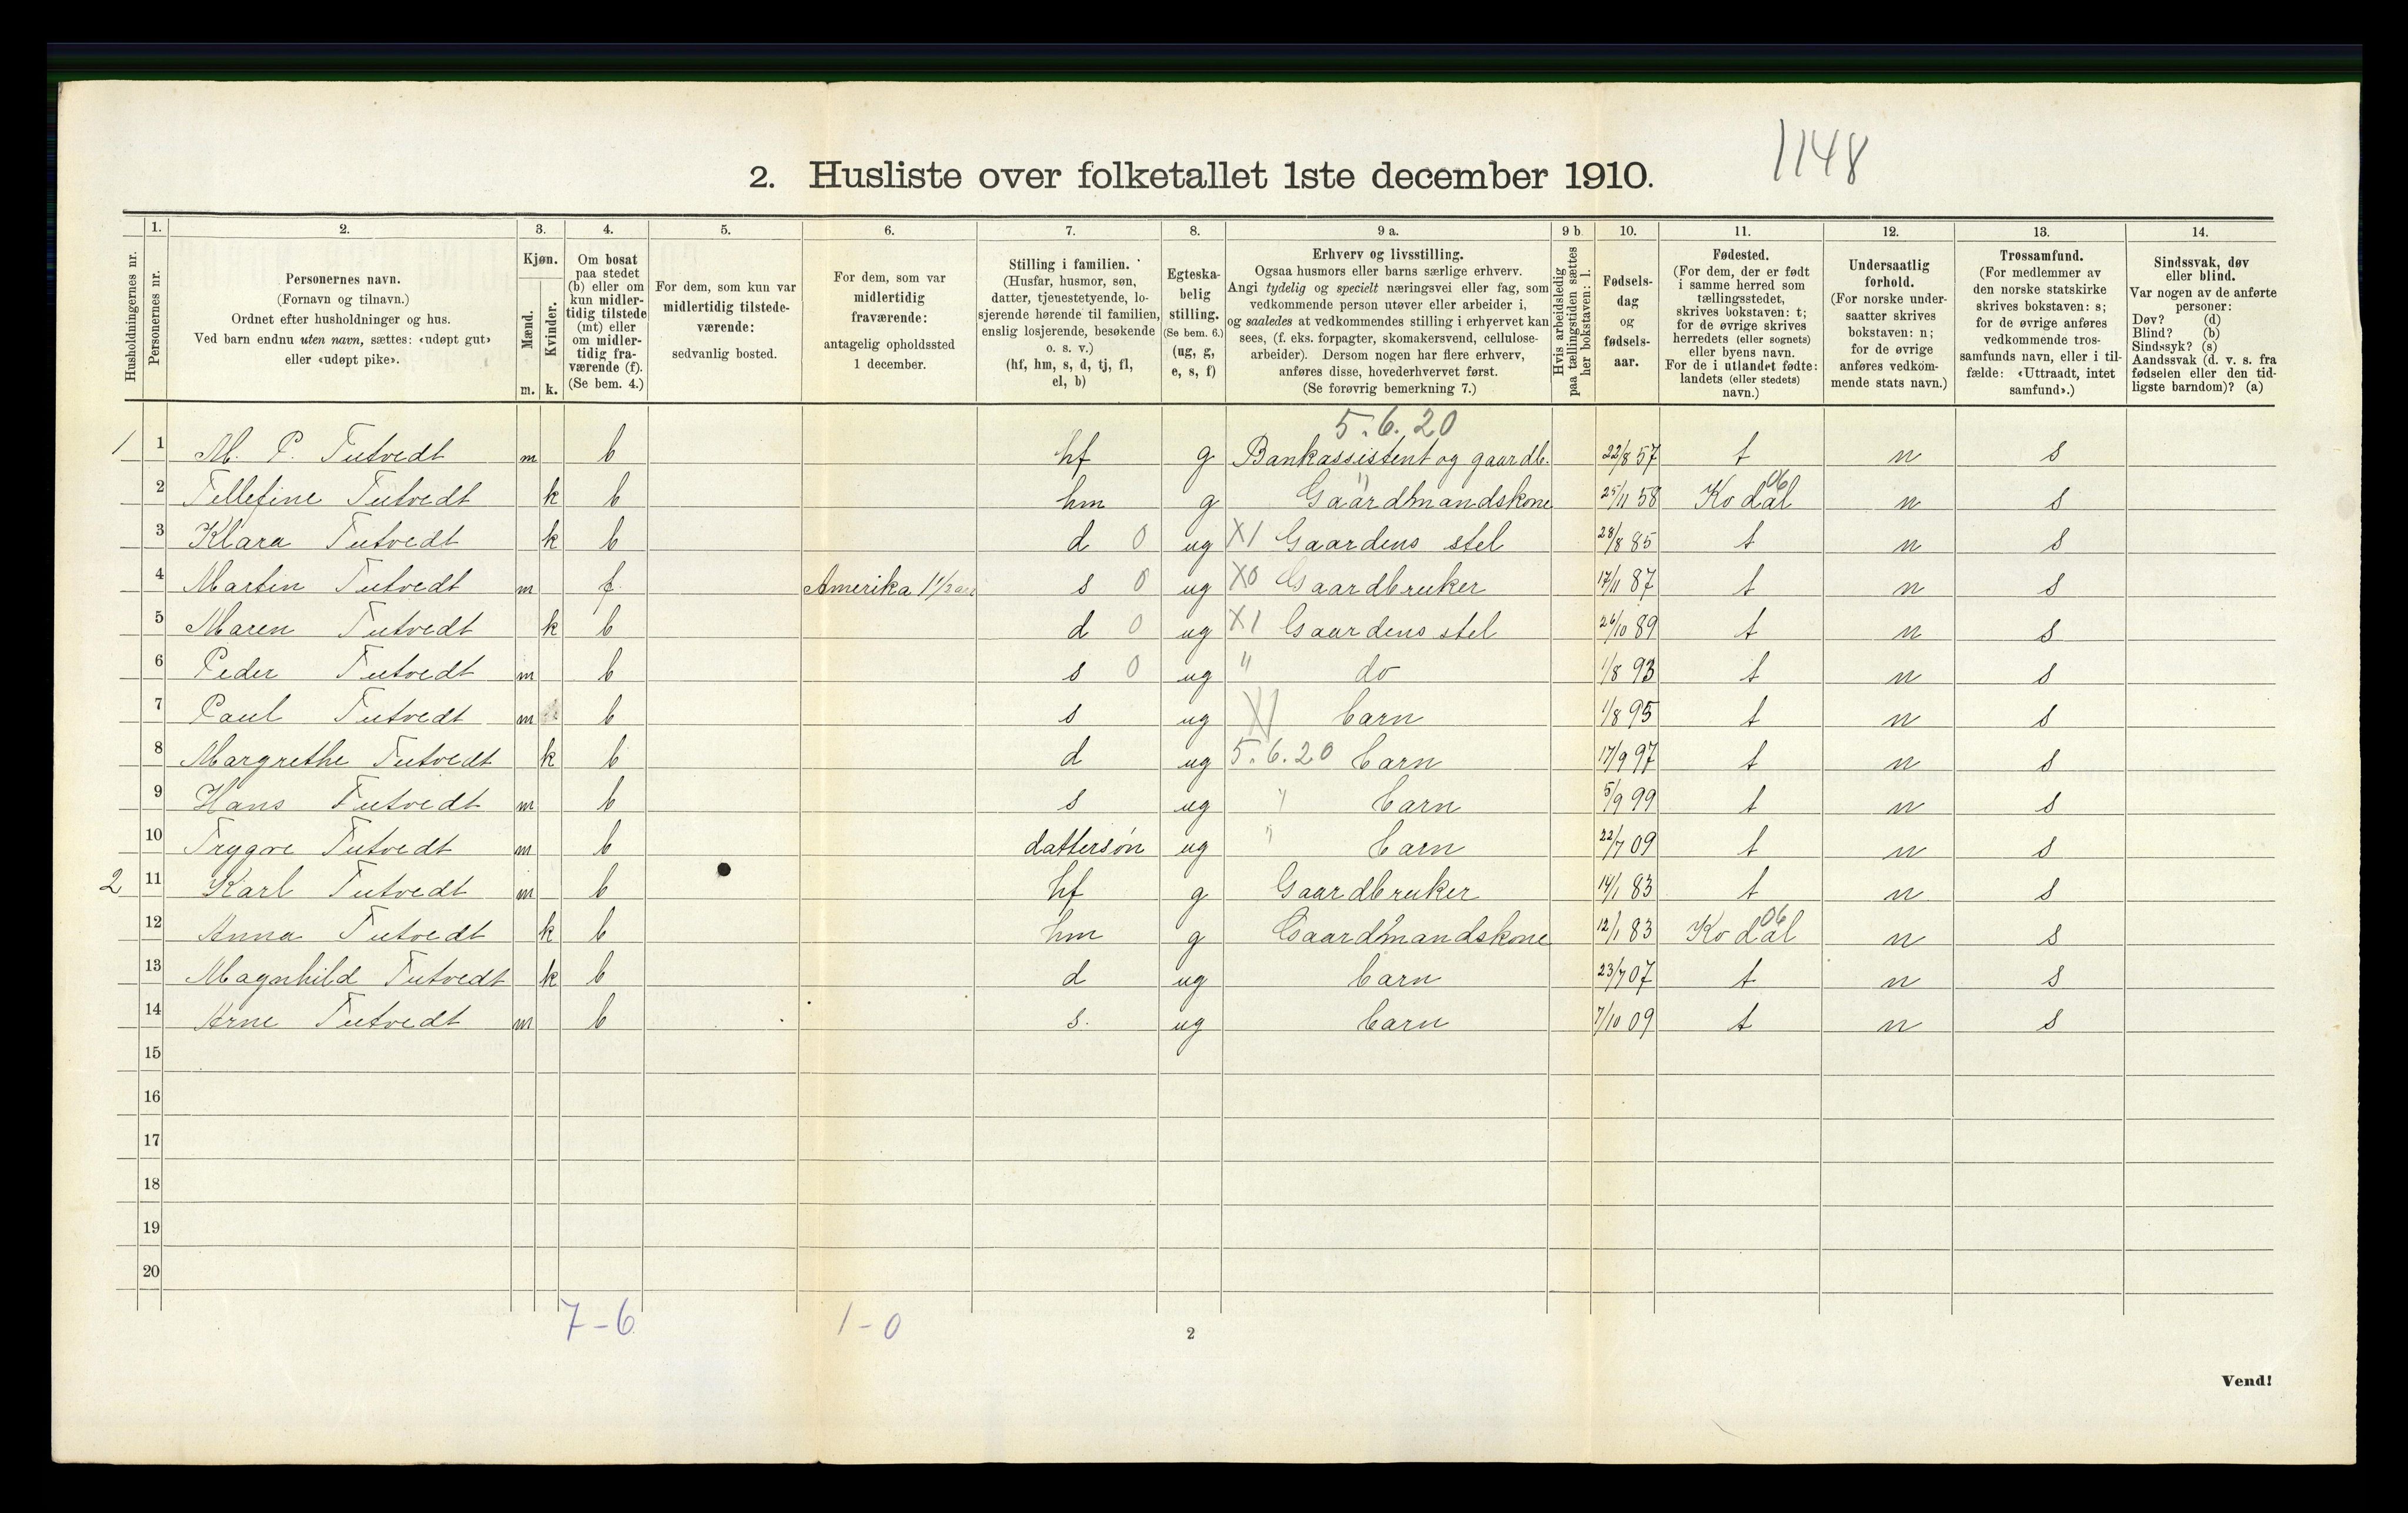 1148
2. Husliste over folketallet 1ste december 1910.
Husholdningernes nr.
1. Personernes nr.
2. Personernes navn. (Fornavn og tilnavn.) Ordnet efter husholdninger og hus. Ved barn endnu uten navn, sættes: «udøpt gut» eller «udøpt pike».
3. Kjøn. Mænd. m. Kvinder. k.
4. Om bosat paa stedet (b) eller om kun midlertidig tilstede (mt) eller om midlertidig fraværende (f). (Se bem. 4.)
5. For dem, som kun var midlertidig tilstedeværende: sedvanlig bosted.
6. For dem, som var midlertidig fraværende: antagelig opholdssted 1 december.
7. Stilling i familien. (Husfar, husmor, søn, datter, tjenestetyende, losjerende hørende til familien, enslig losjerende, besøkende o. s. v.) (hf, hm, s, d, tj, fl, el, b)
8. Egteskabelig stilling. (Se bem. 6.) (ug, g, e, s, f)
9 a. Erhverv og livsstilling. Ogsaa husmors eller barns særlige erhverv. Angi tydelig og specielt næringsvei eller fag, som vedkommende person utøver eller arbeider i, og saaledes at vedkommendes stilling i erhvervet kan sees, (f. eks. forpagter, skomakersvend, cellulosearbeider). Dersom nogen har flere erhverv, anføres disse, hovederhvervet først. (Se forøvrig bemerkning 7.)
9 b. Hvis arbeidsledig paa tællingstiden sættes her bokstaven: l.
10. Fødselsdag og fødselsaar.
11. Fødested. (For dem, der er født i samme herred som tællingsstedet, skrives bokstaven: t; for de øvrige skrives herredets (eller sognets) eller byens navn. For de i utlandet fødte: landets (eller stedets) navn.)
12. Undersaatlig forhold. (For norske undersaatter skrives bokstaven: n; for de øvrige anføres vedkommende stats navn.)
13. Trossamfund. (For medlemmer av den norske statskirke skrives bokstaven: s; for de øvrige anføres vedkommende trossamfunds navn, eller i tilfælde: «Uttraadt, intet samfund».)
14. Sindssvak, døv eller blind. Var nogen av de anførte personer: Døv? (d) Blind? (b) Sindssyk? (s) Aandssvak (d. v. s. fra fødselen eller den tidligste barndom)? (a)
5.6.20
1 1 M. P. Tutvedt m b hf g Bankassistent og gaardb. 22/8 57 t n s
2 Tellefine Tutvedt k b hm g " Gaardmandskone 25/11 58 Kodal 06 n s
3 Klara Tutvedt k b d 0 ug X1 Gaardens stel 28/8 85 t n s
4 Martin Tutvedt m f Amerika 1 1/2 aar s 0 ug X0 Gaardbruker 17/11 87 t n s
5 Maren Tutvedt k b d 0 ug X1 Gaardens stel 26/10 89 t n s
6 Peder Tutvedt m b s 0 ug " do 1/8 93 t n s
7 Paul Tutvedt m b s ug X1 barn 1/8 95 t n s
8 Margrethe Tutvedt k b d ug 5.6.20 barn 17/9 97 t n s
9 Hans Tutvedt m b s ug " barn 5/9 99 t n s
10 Trygve Tutvedt m b dattersön ug " barn 22/7 09 t n s
2 11 Karl Tutvedt m b hf g Gaardbruker 14/1 83 t n s
12 Anna Tutvedt k b hm g Gaardmandskone 12/1 83 Kodal 06 n s
13 Magnhild Tutvedt k b d ug barn 23/7 07 t n s
14 Arne Tutvedt m b s. ug barn 7/10 09 t n s
15
16
17
18
19
20
7-6 1-0
2
Vend!